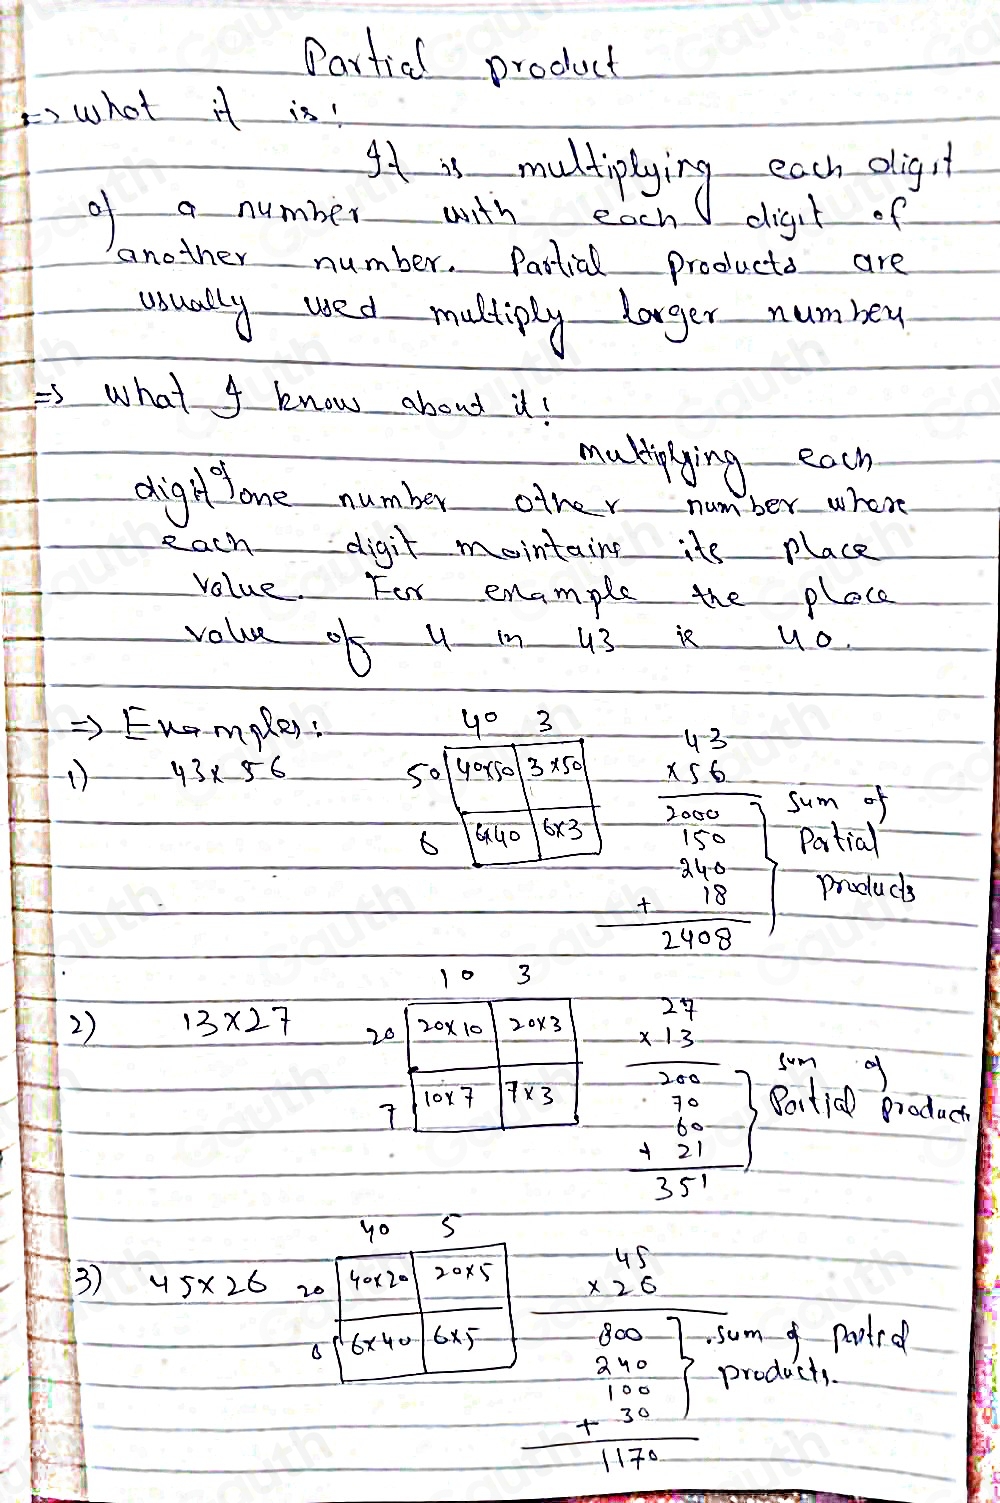 Partial product
=> what it is!
It is multiplying each digit
of a number with each digit of
another number. Partial products are
usually used multiply larger number
=> What I know about it!
multiplying each
digit of one number other number where
each digit maintains its place
value. For example the place
value of 4 in 43 is 40.
=> Examples:
40 3
1) 43 x 56
50 40x50 3x50
6 6x40 6x3
43
x 56
2000
150
240
+ 18
2408
sum of
Partial
products
10 3
2) 13 x 27
20 20x10 20x3
7 10x7 7x3
27
x 13
200
70
60
+ 21
351
sum of
Partial products
40 5
3) 45 x 26
20 40x20 20x5
6 6x40 6x5
45
x 26
800
240
100
+ 30
1170
sum of partial
products.
Gauth